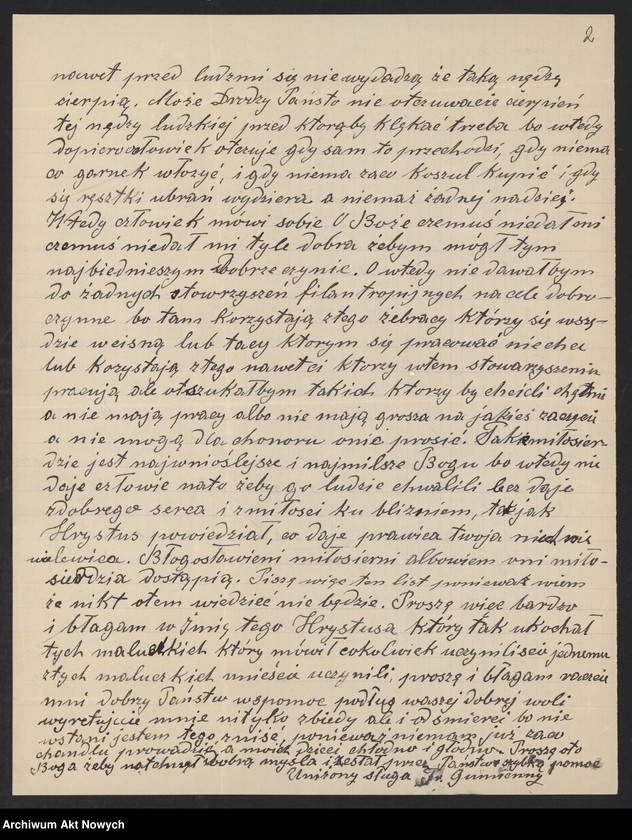 2
nawet przed ludzmi się nie wydadzą że taką nędzę
cierpią. Może Drodzy Państo nie otczuwacie cierpień
tej nędzy ludzkiej przed ktorąby klękać trzeba bo wtedy
dopiero człowiek otczuje gdy sam to przechodzi, gdy niema
co garnek włozyć, i gdy niema zaco koszul kupnić i gdy
się resztki ubrań wydziera a niemasz żadnej nadzieji.
Wtedy człowiek mówi sobie O Boże czemuś niedał mi
czemuś niedał mi tyle dobra żebym mógł tym
najbiedniejszym dobrze czynic. O wtedy nie dawałbym
do żadnych stowrzyszeń filantropijnych na cele dobro-
czynne bo tam korzystają ztego żebracy ktòrzy się wszę-
dzie weisną lub tacy ktorym się pracować niechce
lub kozystają ztego nawet ci ktorzy wtem stowarzyszeniu
pracują ale otszukałbym takich ktorzy by chcieli chętnie
a nie mają pracy albo nie mają grosza na jakieś zajęcie
a nie mogą dla chonoru onic prosić. Takie miłosier
dzie jest najwniosłejsze i najmilsze Bogu bo wtedy nie
daje człowie nato żeby go ludzie chwalili lecz daje
zdobrego serca i zmiłosci ku blizniem, tak jak
Hrystus powiedział, co daje prawica twoja niech nie
wie lewica. Błogosławieni miłosierni albowiem oni miło-
sierdzia dostąpią. Piszę więc ten list ponieważ wiem
że nikt otem wiedzieć nie będzie. Proszę więc bardzo
i błagam w Imię tego Hrystusa który tak ukochał
tych maluczkich który mówił cokolwiek uczyniliscie jednemu
ztych maluczkich mnieście uczynili, proszę i błagam raczcie
mni dobzy Państwo wspomoc podług waszej dobrej woli
wyretujcie mnie nitylko zbiedy ale i od smierci bo nie
wstani jestem tego zniść, ponieważ niemam już zaco
chandlu prowadzić a moich dzieci chłodno i głodno. Proszę oto
Boga żeby natchnął dobrą myslą i został przez Państwo szybką pomoc
Uniżony sługa Fr. Gumienny
Archiwum Akt Nowych